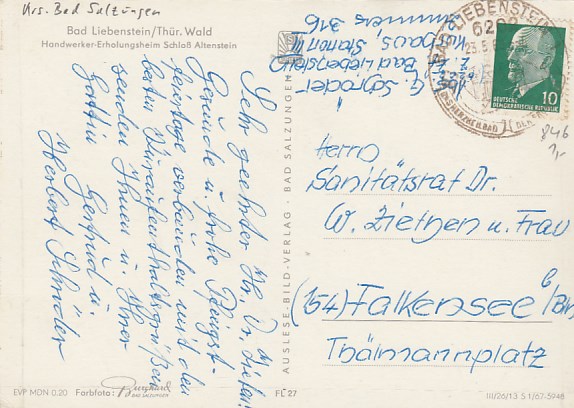 Krs. Bad Salzungen
Bad Liebenstein/Thür. Wald
Handwerker-Erholungsheim Schloß Altenstein
Sehr geehrter Hr. Dr. Ziethen!
Gesunde u. frohe Pfingst-
feiertage verbunden mit den
besten Kuraufenthaltsgrüßen
senden Ihnen u. Ihrer
Gattin Gertrud u.
Herbert Schröder
AUSLESE-BILD-VERLAG · BAD SALZUNGEN
Abs. G. Schröder
z. Zt. Bad Liebenstein
Kurhaus, Station III
Zimmer 316
BAD LIEBENSTEIN
DEUTSCHE
DEMOKRATISCHE REPUBLIK
10
Herrn
Sanitätsrat Dr.
W. Ziethen u. Frau
(154) Falkensee b/Bln
Thälmannplatz
EVP MDN 0.20 Farbfoto: Burghard
BAD SALZUNGEN
FL 27
III/26/13 S 1/67-5948